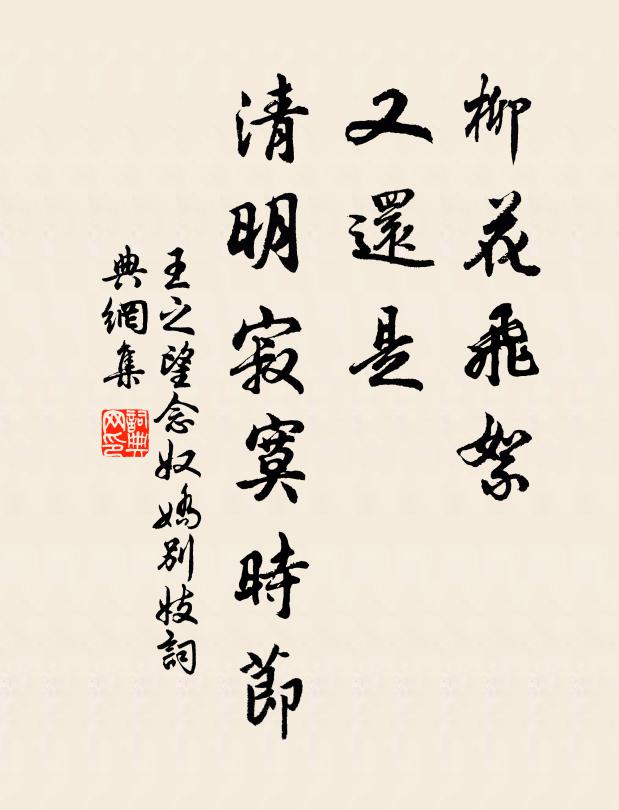 柳花飛絮
又還是
清明寂寞時節
王之望念奴嬌別妓詞
典網集
詞典网印